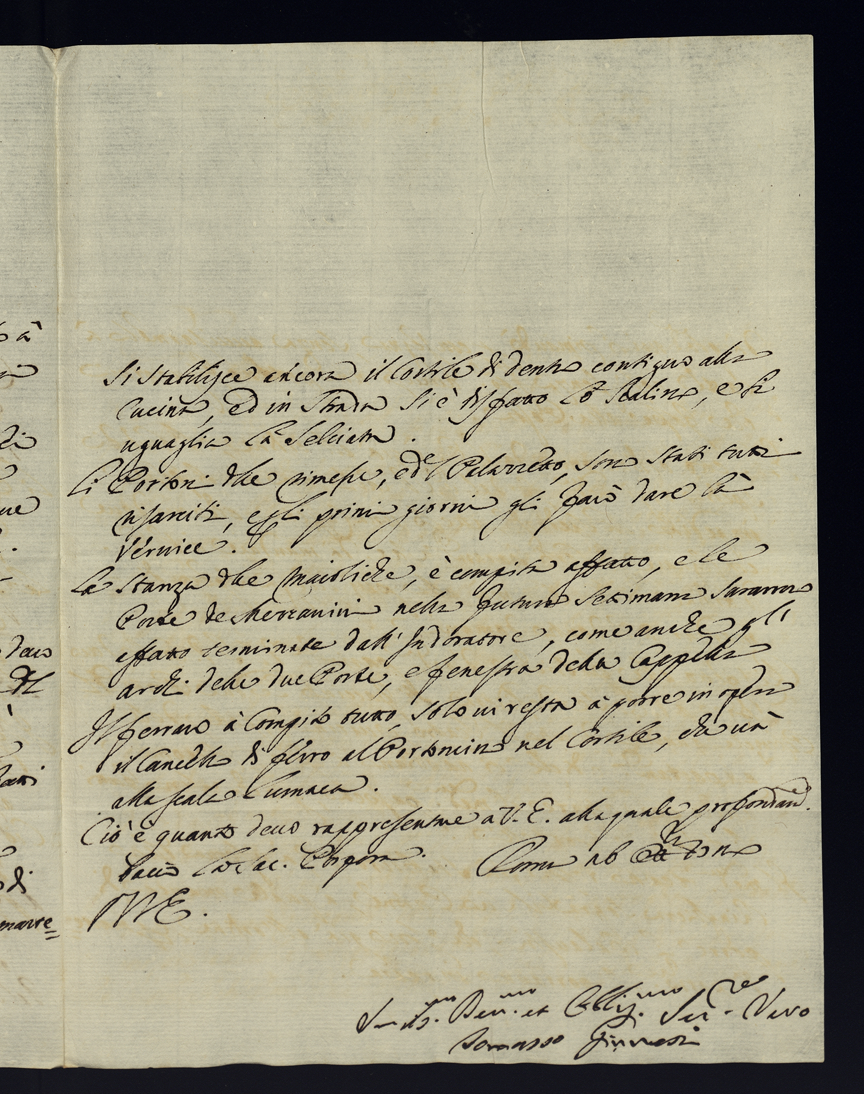 Si stabilisce ancora il Cortile di dentro contiguo alla
Cucina, ed in Strada si è disfatto lo Scalino, e si
uguaglia la Selciata.
Li Portoni dlle rimesse, e del Palazzetto, son stati tutti
risarciti, e gli primi giorni gli farò dare la
Vernice.
La Stanza dlle Maioliche, è compita affatto, e le
Porte de Mezzanini nella futura Settimana saranno
affatto terminate dall'Indoratore, come anche gl'
archi delle due Porte, e fenestra della Cappella
Il ferraro à Compito tutto, solo vi resta à porre in opera
il Cancello di ferro al Portoncino nel Cortile, ed un
alla scala lumaca.
Ciò è quanto devo rappresentare a V. E. alla quale profondam.
bacio la Sac. Porpora. Roma
PVE.
Dev.mo et Obblig.mo Ser.re Vero
Tomasso